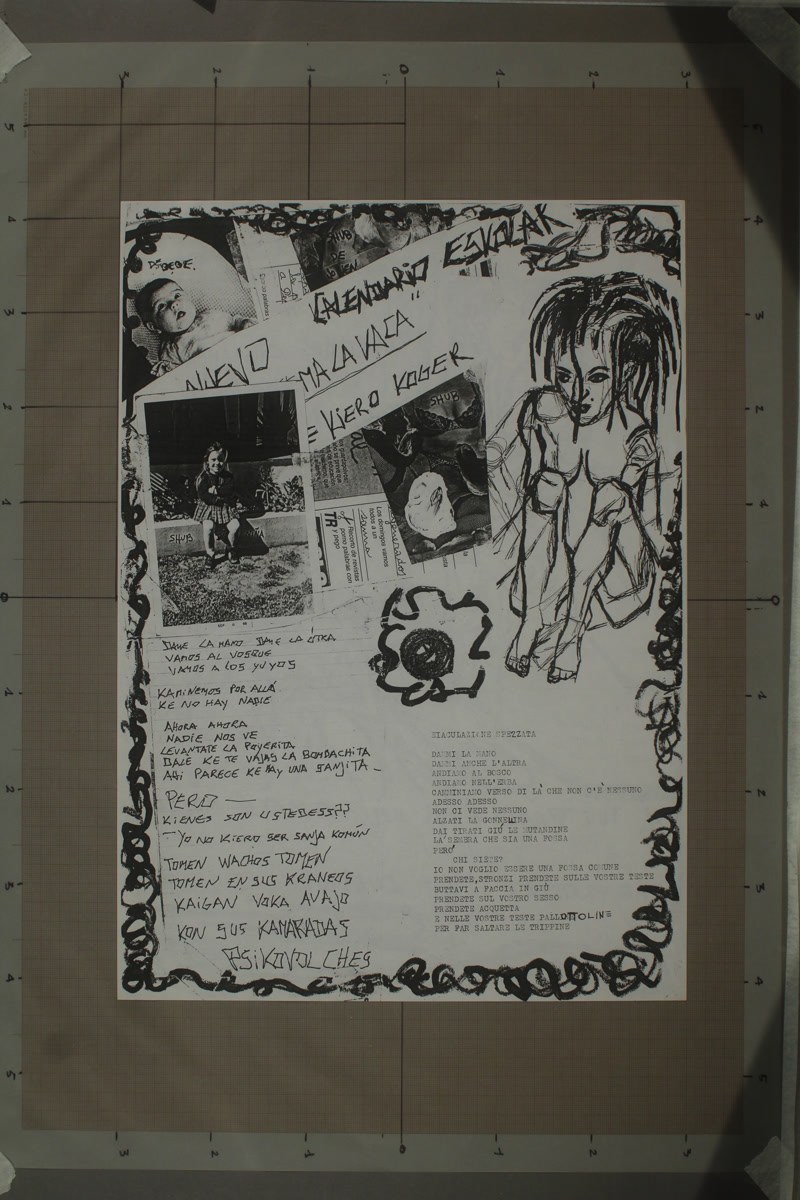 D'BEBE.
SHUB
DE
CALENDARIO ESKOLAR
NUEVO
MA LA VACA"
E KIERO KOGER
SHUB
Los domingos vamos
todos a un
Recorto de revistas
TR
SHUB
DAME LA MANO DAME LA OTRA
VAMOS AL VOSQUE
VAMOS A LOS YUYOS
KAMINEMOS POR ALLÁ
KE NO HAY NADIE
AHORA AHORA
NADIE NOS VE
LEVANTATE LA POYERITA
DALE KE TE VAJAS LA BOMBACHITA
AHI PARECE KE HAY UNA SANJITA_
PERO —
KIENES SON USTEDESS??
— YO NO KIERO SER SANJA KOMÚN
TOMEN WACHOS TOMEN
TOMEN EN SUS KRANEOS
KAIGAN VOKA AVAJO
KON SUS KAMARADAS
PSIKOVOLCHES
EIACULAZIONE SPEZZATA
DAMMI LA MANO
DAMMI ANCHE L'ALTRA
ANDIAMO AL BOSCO
ANDIAMO NELL'ERBA
CAMMINIAMO VERSO DI LÀ CHE NON C'È NESSUNO
ADESSO ADESSO
NON CI VEDE NESSUNO
ALZATI LA GONNELLINA
DAI TIRATI GIÙ LE MUTANDINE
LA' SEMBRA CHE SIA UNA FOSSA
PERO'
CHI SIETE?
IO NON VOGLIO ESSERE UNA FOSSA COMUNE
PRENDETE,STRONZI PRENDETE SULLE VOSTRE TESTE
BUTTAVI A FACCIA IN GIÙ
PRENDETE SUL VOSTRO SESSO
PRENDETE ACQUETTA
E NELLE VOSTRE TESTE PALLOTTOLINE
PER FAR SALTARE LE TRIPPINE